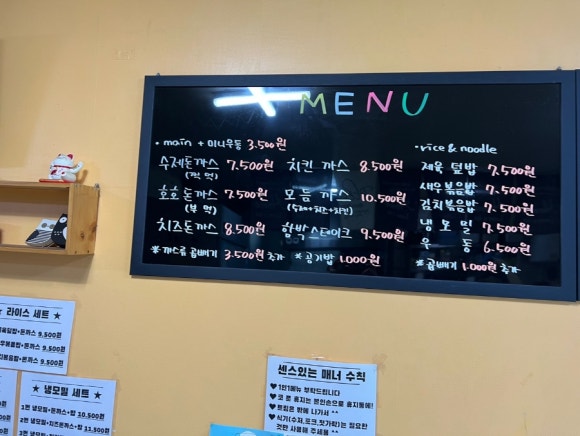 MENU
• main + 미니우동 3.500원
수제돈까스 7.500원 치킨까스 8.500원
(찍먹)
호호돈까스 7.500원 모듬까스 10.500원
(부먹) (수제+치즈+치킨)
치즈돈까스 8.500원 함박스테이크 9.500원
※까스류 곱빼기 3.500원 추가 ※공기밥 1.000원
• rice & noodle
제육덮밥 7.500원
새우볶음밥 7.500원
김치볶음밥 7.500원
냉모밀 7.500원
우동 6.500원
※곱빼기 1.000원 추가
★ 라이스 세트 ★
제육덮밥+돈까스 9,500원
우볶음밥+돈까스 9,500원
치볶음밥+돈까스 9,500원
★ 냉모밀 세트 ★
1번 냉모밀+돈까스+밥 10,500원
2번 냉모밀+치즈돈까스+밥 11,500원
센스있는 매너 수칙
♥ 1인1메뉴 부탁드립니다
♥ 코 푼 휴지는 본인손으로 휴지통에!
♥ 트림은 밖에 나가서 ^^
♥ 식기(수저,포크,젓가락)는 필요한
것만 사용해 주세용 ^^